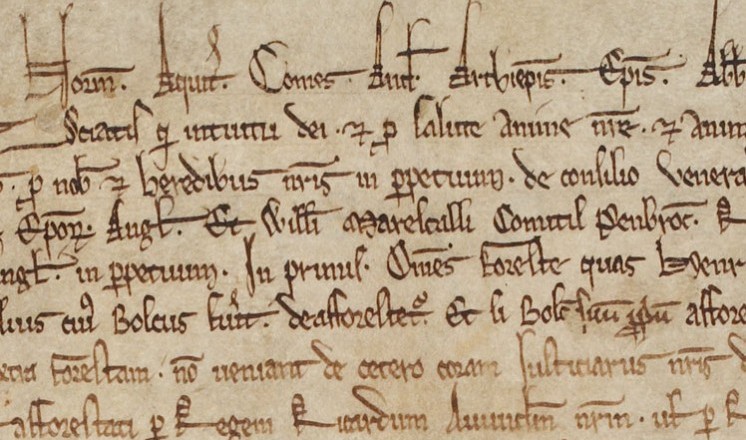 Norm̄. Aquit̄. Comes And̄. Archiep̄is. Ep̄is. Abb
Sciatis q̄ intuitu dei ⁊ p̱ salute anime nr̄e ⁊ anim
p̱ nob̄ ⁊ heredibus nr̄is in p̱petuum. de consilio venera
Ep̄oꝝ. Angl̄. Et Willi Marescalli Comitis Penbroc̄. R
ngl̄. in p̱petuum. In primis. Om̄es foreste quas Henr
lius eiꝰ Boscus fu͛it. deafforestet᷑. Et si Bosc̄ suū ꝓpū affore
forestam. nō veniant de cetero coram Justiciariis nr̄is d
afforestati p̱ Regem Ricardum Avunclm̄ nr̄m. ul̄ p̱ R